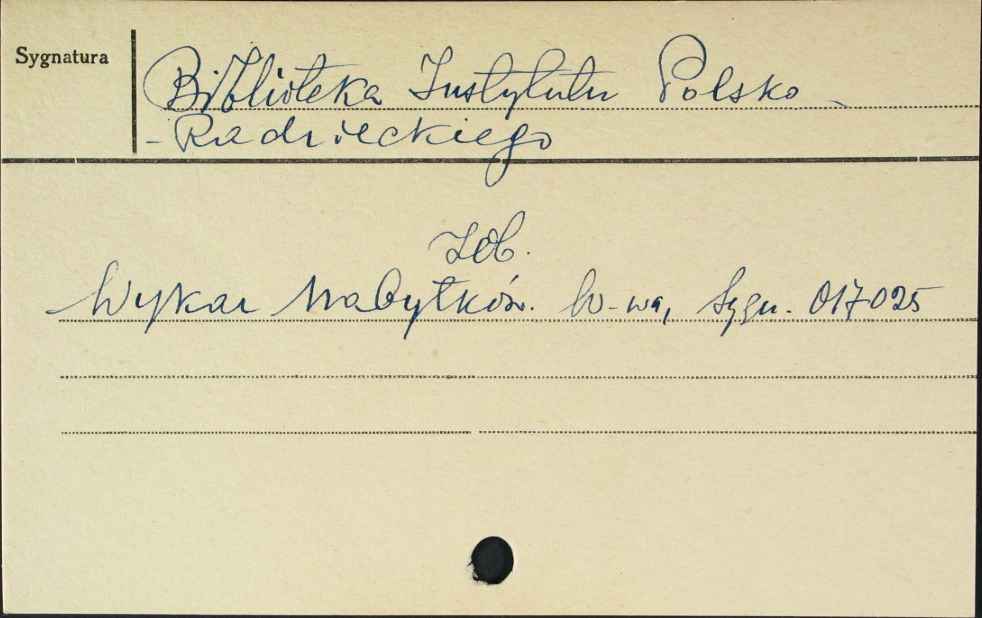 Sygnatura
Biblioteka Instytutu Polsko-
-Radzieckiego
Zob.
Wykaz Nabytków. W-wa, Sygn. 017025